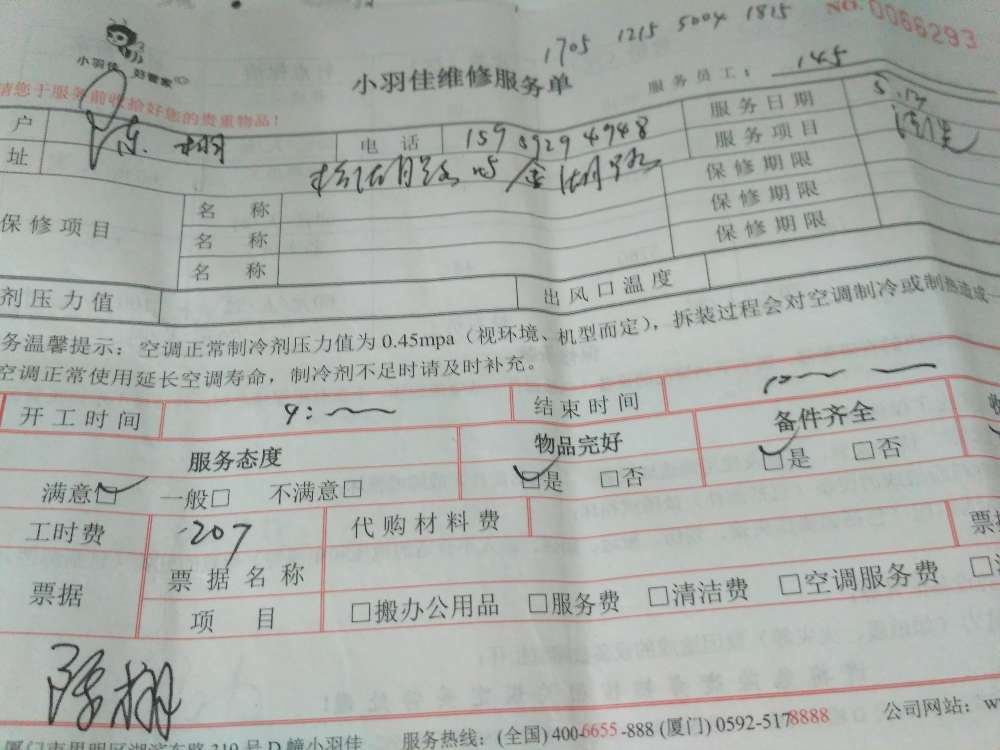 1705 1215 5004 1815
NO.0066293
小羽佳 好管家
小羽佳维修服务单
服务员工：145
请您于服务前收拾好您的贵重物品！
户 陈栩 电话 服务日期
址 服务项目
保修项目 名称 保修期限
名称 保修期限
名称 保修期限
剂压力值 出风口温度
务温馨提示：空调正常制冷剂压力值为0.45mpa（视环境、机型而定），拆装过程会对空调制冷或制热造成一
空调正常使用延长空调寿命，制冷剂不足时请及时补充。
开工时间 9: 结束时间
服务态度 物品完好 备件齐全
满意☑ 一般□ 不满意□ ☑是 □否 ☑是 □否
工时费 207 代购材料费
票据 票据名称
项目 □搬办公用品 □服务费 □清洁费 □空调服务费
陈栩
厦门市思明区湖滨东路319号D幢小羽佳 服务热线：(全国) 400-6655-888 (厦门) 0592-5178888 公司网站：w